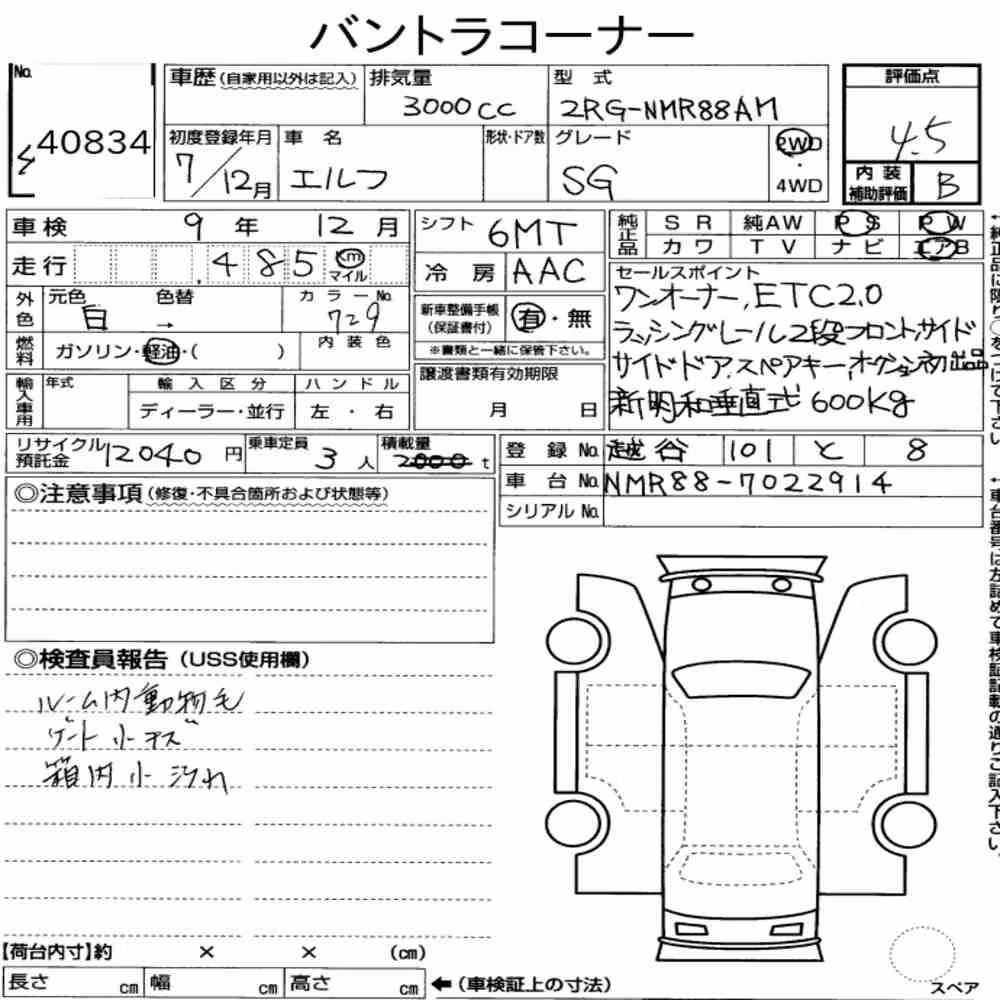 バントラコーナー
No. 40834
車歴(自家用以外は記入)
排気量 3000cc
型式 2RG-NMR88AM
評価点 4.5
初度登録年月 7/12月
車名 エルフ
形状・ドア数
グレード SG
2WD・4WD
内装補助評価 B
車検 9年 12月
シフト 6MT
純正品 SR 純AW PS PW
カワ TV ナビ エアB
走行 485 km マイル
冷房 AAC
セールスポイント
ワンオーナー, ETC2.0
ラッシングレール2段フロント,サイド
サイドドア,スペアキー,オークション初出品
新明和垂直式600kg
外色 元色 白 色替 →
カラーNo. 729
新車整備手帳(保証書付) 有・無
※書類と一緒に保管下さい。
燃料 ガソリン・軽油・( )
内装色
輸入車用 年式 輸入区分 ハンドル
ディーラー・並行 左・右
譲渡書類有効期限
月 日
リサイクル預託金 12040円
乗車定員 3人
積載量 2000t
登録No. 越谷 101 と 8
車台No. NMR88-7022914
シリアルNo.
◎注意事項(修復・不具合箇所および状態等)
◎検査員報告(USS使用欄)
ルーム内動物毛
ゲート小キズ
箱内小汚れ
【荷台内寸】約 × × (cm)
長さ cm 幅 cm 高さ cm ←(車検証上の寸法)
スペア